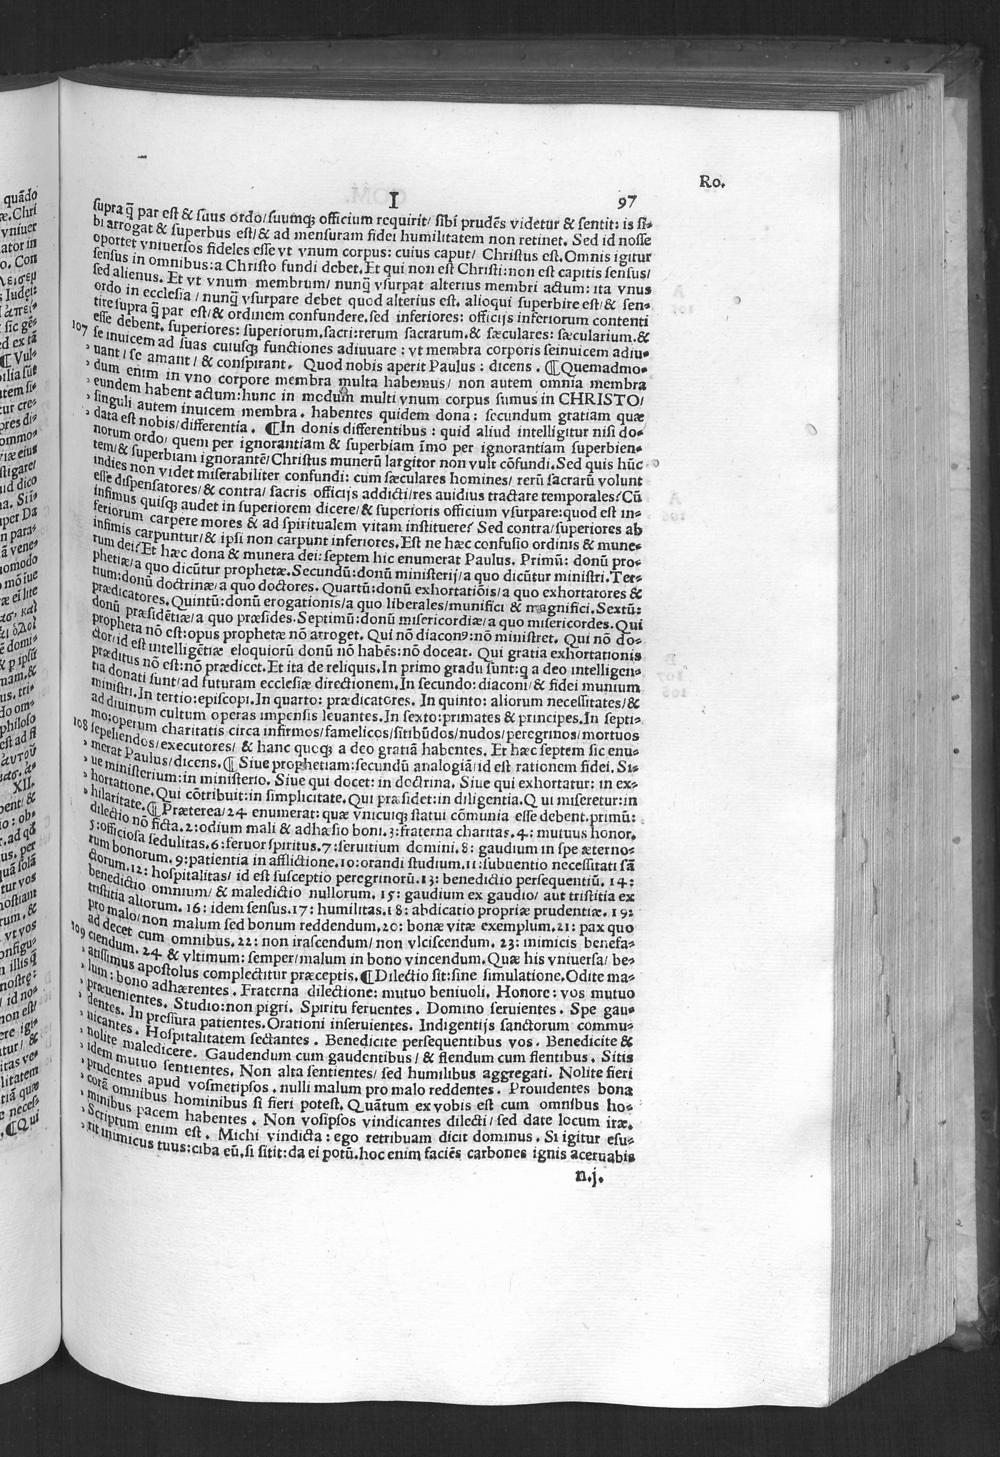 Ro.
I
97
supra q̃ par est & suus ordo/ suumq; officium requirit/ sibi prudẽs videtur & sentit: is si⸗
bi arrogat & superbus est/ & ad mensuram fidei humilitatem non retinet. Sed id nosse
oportet vniuersos fideles esse vt vnum corpus: cuius caput/ Christus est. Omnis igitur
sensus in omnibus: a Christo fundi debet. Et qui non est Christi: non est capitis sensus/
sed alienus. Et vt vnum membrum/ nunq̃ vsurpat alterius membri actum: ita vnus
ordo in ecclesia/ nunq̃ vsurpare debet quod alterius est, alioqui superbire est/ & sen⸗
tire supra q̃ par est/ & ordinem confundere, sed inferiores: officijs inferiorum contenti
esse debent, superiores: superiorum, sacri: rerum sacrarum, & sæculares: sæcularium, &
107 se inuicem ad suas cuiusq; functiones adiuuare: vt membra corporis seinuicem adiu⸗
uant/ se amant/ & conspirant. Quod nobis aperit Paulus: dicens. ¶Quemadmo⸗
dum enim in vno corpore membra multa habemus/ non autem omnia membra
eundem habent actum: hunc in modum multi vnum corpus sumus in CHRISTO/
singuli autem inuicem membra. habentes quidem dona: secundum gratiam quæ
data est nobis/ differentia. ¶In donis differentibus: quid aliud intelligitur nisi do⸗
norum ordo/ quem per ignorantiam & superbiam ĩmo per ignorantiam superbien⸗
tem/ & superbiam ignorantẽ/ Christus munerũ largitor non vult cõfundi. Sed quis hũc
indies non videt miserabiliter confundi: cum sæculares homines/ rerũ sacrarũ volunt
esse dispensatores/ & contra/ sacris officijs addicti/ res auidius tractare temporales? Cũ
infimus quisq; audet in superiorem dicere/ & superioris officium vsurpare: quod est in⸗
feriorum carpere mores & ad spiritualem vitam instituere? Sed contra/ superiores ab
infimis carpuntur/ & ipsi non carpunt inferiores. Est ne hæc confusio ordinis & mune⸗
rum dei? Et hæc dona & munera dei: septem hic enumerat Paulus. Primũ: donũ pro⸗
phetiæ/ a quo dicũtur prophetæ. Secundũ: donũ ministerij/ a quo dicũtur ministri. Ter⸗
tium: donũ doctrinæ/ a quo doctores. Quartũ: donũ exhortatiõis/ a quo exhortatores &
prædicatores. Quintũ: donũ erogationis/ a quo liberales/ munifici & magnifici. Sextũ:
donũ præsidẽtiæ/ a quo præsides. Septimũ: donũ misericordiæ/ a quo misericordes. Qui
propheta nõ est: opus prophetæ nõ arroget. Qui nõ diaconꝰ: nõ ministret. Qui nõ do⸗
ctor/ id est intelligẽtiæ eloquiorũ donũ nõ habẽs: nõ doceat. Qui gratia exhortationis
præditus nõ est: nõ prædicet. Et ita de reliquis. In primo gradu sunt: q a deo intelligen⸗
tia donati sunt/ ad futuram ecclesiæ directionem. In secundo: diaconi/ & fidei munium
ministri. In tertio: episcopi. In quarto: prædicatores. In quinto: aliorum necessitates/ &
ad diuinum cultum operas impensis leuantes. In sexto: primates & principes. In septi⸗
mo: operum charitatis circa infirmos/ famelicos/ sitibũdos/ nudos/ peregrinos/ mortuos
108 sepeliendos/ executores/ & hanc quoq; a deo gratiã habentes. Et hæc septem sic enu⸗
merat Paulus/ dicens. ¶Siue prophetiam: secundũ analogiã/ id est rationem fidei. Si⸗
ue ministerium: in ministerio. Siue qui docet: in doctrina. Siue qui exhortatur: in ex⸗
hortatione. Qui cõtribuit: in simplicitate. Qui præsidet: in diligentia. Qui miseretur: in
hilaritate. ¶Præterea/ 24 enumerat: quæ vnicuiq; statui cõmunia esse debent. primũ:
dilectio nõ ficta. 2: odium mali & adhæsio boni. 3: fraterna charitas. 4: mutuus honor.
5: officiosa sedulitas. 6: feruor spiritus. 7: seruitium domini. 8: gaudium in spe æterno⸗
rum bonorum. 9: patientia in afflictione. 10: orandi studium. 11: subuentio necessitati sã
ctorum. 12: hospitalitas/ id est susceptio peregrinorũ. 13: benedictio persequentiũ. 14:
benedictio omnium/ & maledictio nullorum. 15: gaudium ex gaudio/ aut tristitia ex
tristitia aliorum. 16: idem sensus. 17: humilitas. 18: abdicatio propriæ prudentiæ. 19:
pro malo/ non malum sed bonum reddendum. 20: bonæ vitæ exemplum. 21: pax quo
ad decet cum omnibus. 22: non irascendum/ non vlciscendum. 23: inimicis benefa⸗
109 ciendum. 24 & vltimum: semper/ malum in bono vincendum. Quæ his vniuersa/ be⸗
atissimus apostolus complectitur præceptis. ¶Dilectio sit: sine simulatione. Odite ma⸗
lum: bono adhærentes. Fraterna dilectione: mutuo beniuoli. Honore: vos mutuo
præuenientes. Studio: non pigri. Spiritu feruentes. Domino seruientes. Spe gau⸗
dentes. In pressura patientes. Orationi inseruientes. Indigentijs sanctorum commu⸗
nicantes. Hospitalitatem sectantes. Benedicite persequentibus vos. Benedicite &
nolite maledicere. Gaudendum cum gaudentibus/ & flendum cum flentibus. Sitis
idem mutuo sentientes. Non alta sentientes/ sed humilibus aggregati. Nolite fieri
prudentes apud vosmetipsos. nulli malum pro malo reddentes. Prouidentes bona
corã omnibus hominibus si fieri potest. Quãtum ex vobis est cum omnibus ho⸗
minibus pacem habentes. Non vosipsos vindicantes dilecti/ sed date locum iræ.
Scriptum enim est. Michi vindicta: ego retribuam dicit dominus. Si igitur esu⸗
rit inimicus tuus: ciba eũ, si sitit: da ei potũ. hoc enim faciẽs carbones ignis aceruabis
n.j.